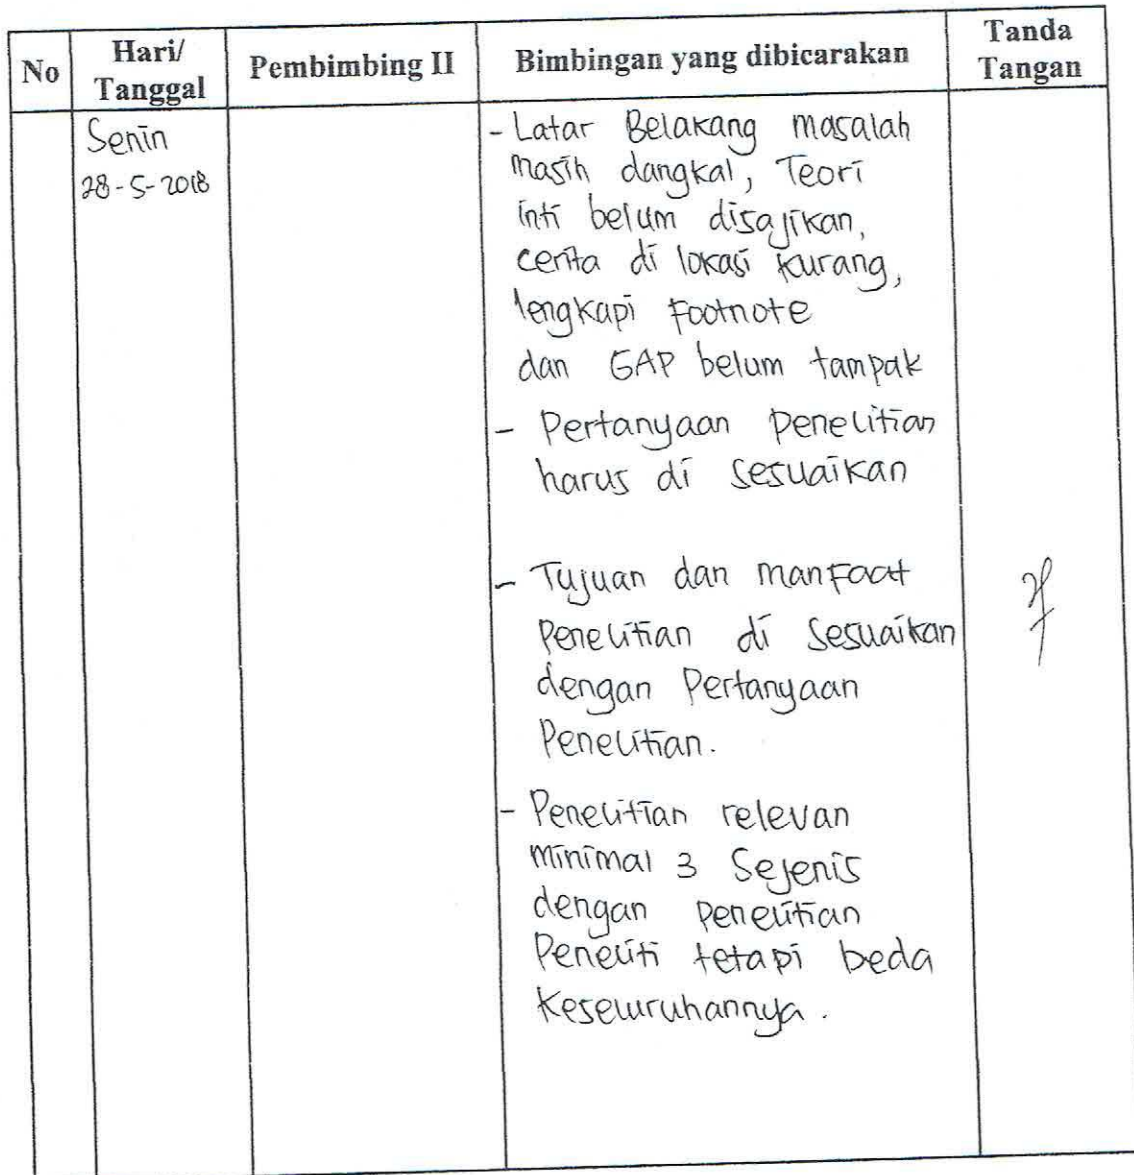 No Hari/ Tanggal Pembimbing II Bimbingan yang dibicarakan Tanda Tangan
Senin
28-5-2018
- Latar Belakang masalah
masih dangkal, Teori
inti belum disajikan,
cerita di lokasi kurang,
lengkapi Footnote
dan GAP belum tampak
- Pertanyaan penelitian
harus di sesuaikan
- Tujuan dan manfaat
Penelitian di sesuaikan
dengan Pertanyaan
Penelitian.
- Penelitian relevan
minimal 3 Sejenis
dengan penelitian
Peneliti tetapi beda
Keseluruhannya.